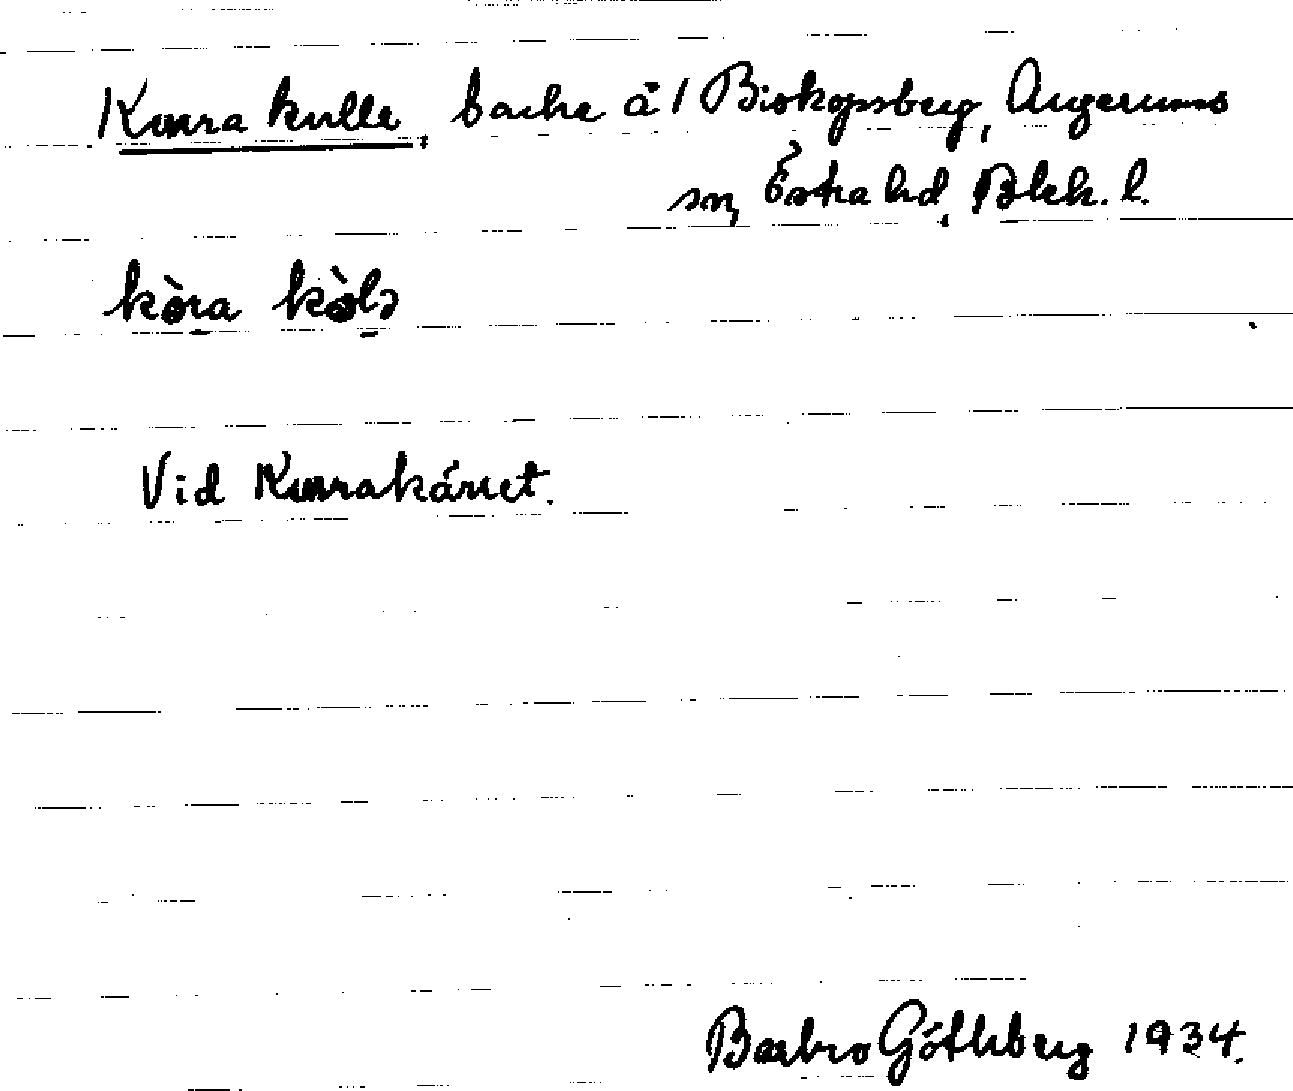 Kurra kulle, backe å 1 Biskopsberg, Augerums
sn, Östra hd, Blek. l.
kòra kòlə
Vid Kurrakärret.
Barbro Göthberg 1934.